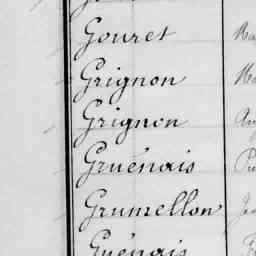 Gouret
Grignon
Grignon
Gruénais
Grumellon
Guénais